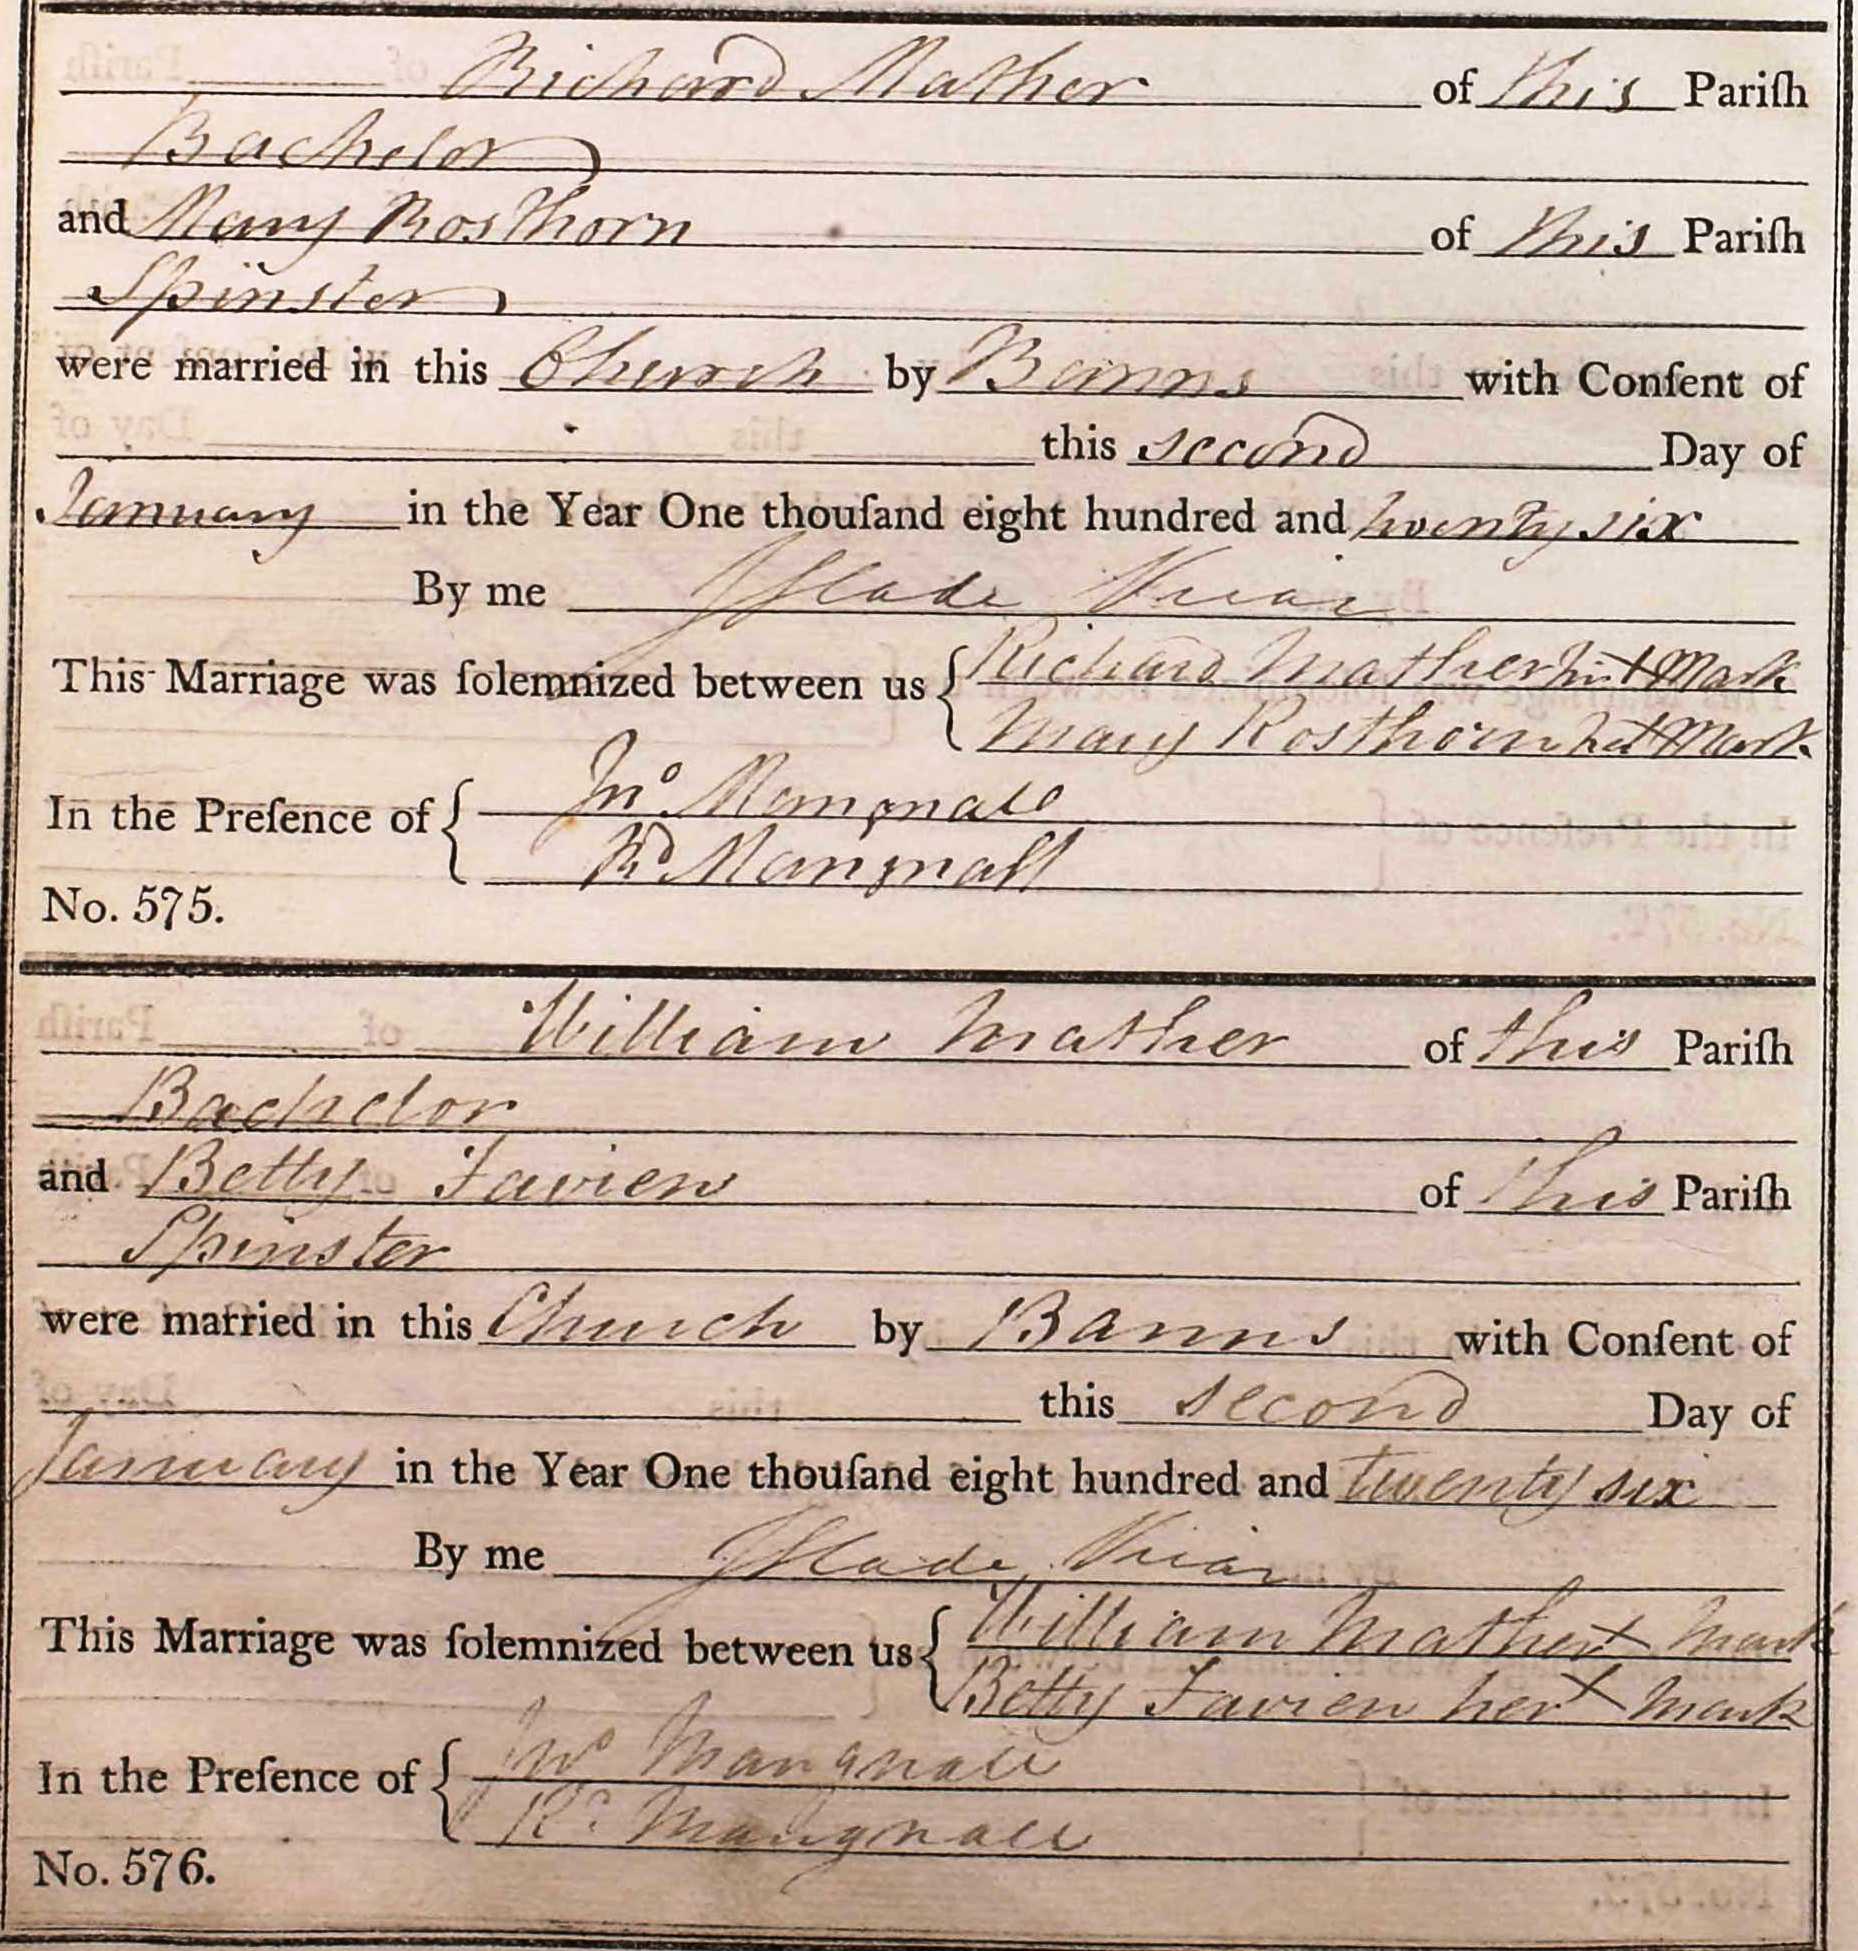 Richard Mather of this Pariſh
Bachelor
and Mary Rosthorn of this Pariſh
Spinster
were married in this Church by Banns with Conſent of
this second Day of
January in the Year One thouſand eight hundred and twenty six
By me J Slade Vicar
This Marriage was ſolemnized between us { Richard Mather his + Mark
Mary Rosthorn her + Mark
In the Preſence of { Jno Mangnall
Rd Mangnall
No. 575.
William Mather of this Pariſh
Bachelor
and Betty Favien of this Pariſh
Spinster
were married in this Church by Banns with Conſent of
this second Day of
January in the Year One thouſand eight hundred and twenty six
By me J Slade Vicar
This Marriage was ſolemnized between us { William Mather + Mark
Betty Favien her + Mark
In the Preſence of { Jno Mangnall
Rd Mangnall
No. 576.